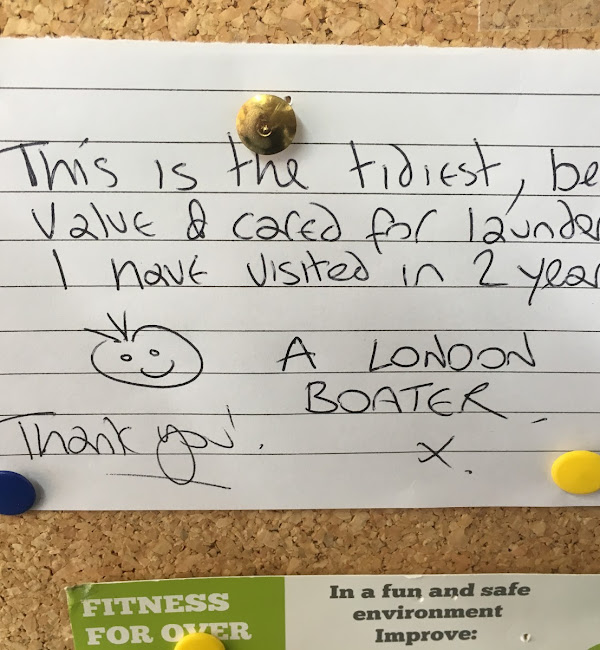 This is the tidiest, be
value & cared for launder
I have visited in 2 year
A LONDON
BOATER
Thank you'.
x.
FITNESS
FOR OVER
In a fun and safe
environment
Improve: